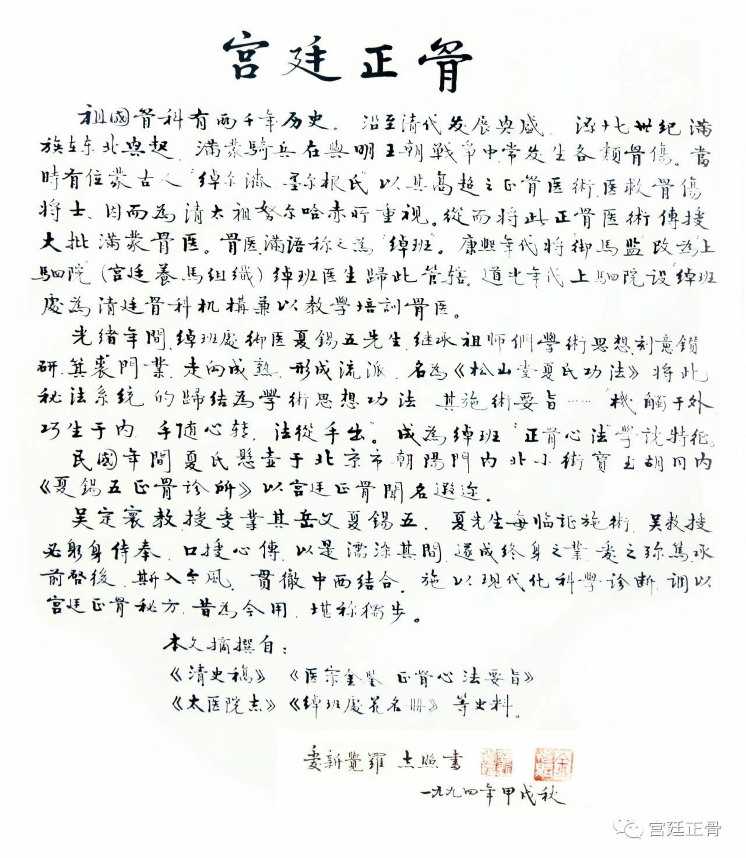 宫廷正骨
祖國骨科有两千年历史，沿至清代发展興盛，逐十七世纪滿
族在东北興起，滿蒙騎兵在與明王朝戰爭中常发生各類骨傷。當
時有位蒙古人“绰尔济·墨尔根氏”以其高超之正骨医術，医救骨傷
将士、因而為清太祖努尔哈赤所重視。從而将此正骨医術傳授
大批滿蒙骨医。骨医滿語称之為“绰班”。康熙年代将御馬監改為上
駟院（宫廷養馬组織）绰班医生歸此管辖，道光年代上駟院设“绰班
處為清廷骨科机構兼以教學培訓骨医。
光绪年間，绰班處御医夏錫五先生，继承祖师們學術思想，刻意鑽
研，箕裘門業，走向成熟，形成流派，名為《松山堂夏氏功法》将此
秘法系统的歸结為學術思想功法，其施術要旨……“機觸于外，
巧生于内，手随心转，法從手出”。成為绰班“正骨心法”學说特征。
民國年間夏氏懸壶于北京市朝陽門内北小街寶玉胡同内
《夏錫五正骨诊所》以宫廷正骨聞名遐迩。
吴定寰教授受業其岳父夏錫五，夏先生每临証施術，吴教授
必躬身侍奉，口授心傳，以是濡染其間，遂成终身之業，爱之弥篤，承
前啓後，斯人古風，貫徹中西结合，施以现代化科學诊断，调以
宫廷正骨秘方，昔為今用，堪称獨步。
本文摘撰自：
《清史稿》《医宗金鉴 正骨心法要旨》
《太医院志》《绰班處花名册》等史料。
爱新覺羅 志照書
一九九四年甲戌秋
宫廷正骨